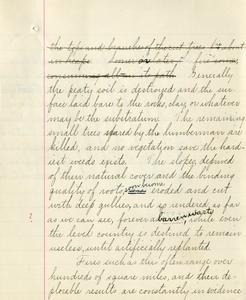 the tops and branches of the cut trees left about
in heaps. Sooner or later fire
consumes all in its path. Generally
the peaty soil is destroyed and the sur-
face laid bare to the rocks, clay or whatever
may be the substratum. The remaining
small trees spared by the lumberman are
killed, and no vegetation save the hard-
iest weeds exists. The slopes, deprived
of their natural cover and the binding
quality of roots, eroded and cut
with deep gullies, and so rendered, as far
as we can see, forever barren wastes, while even
the level country is destined to remain
useless, until artificially replanted.
Fires such as this often range over
hundreds of square miles, and their de-
plorable results are constantly in evidence